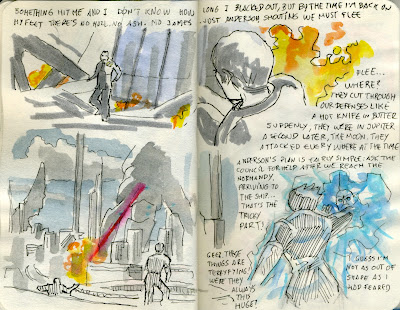 SOMETHING HIT ME AND I DON'T KNOW HOW
MY FEET THERE'S NO HULL. NO ASH. NO JAMES
LONG I BLACKED OUT, BUT BY THE TIME I'M BACK ON
JUST ANDERSON SHOUTING WE MUST FLEE
FLEE...
WHERE?
THEY CUT THROUGH
OUR DEFENSES LIKE
A HOT KNIFE ON BUTTER
SUDDENLY, THEY WERE IN JUPITER
A SECOND LATER, THE MOON. THEY
ATTACKED EVERYWHERE AT THE TIME
ANDERSON'S PLAN IS FAIRLY SIMPLE: ASK THE
COUNCIL FOR HELP AFTER WE REACH THE
NORMANDY.
ARRIVING
TO THE
SHIP...
THAT'S THE
TRICKY
PART!
GEEZ, THESE
THINGS ARE
TERRIFYING!
WERE THEY
ALWAYS
THIS
HUGE?
I GUESS I'M
NOT AS OUT OF
SHAPE AS I
HAD FEARED